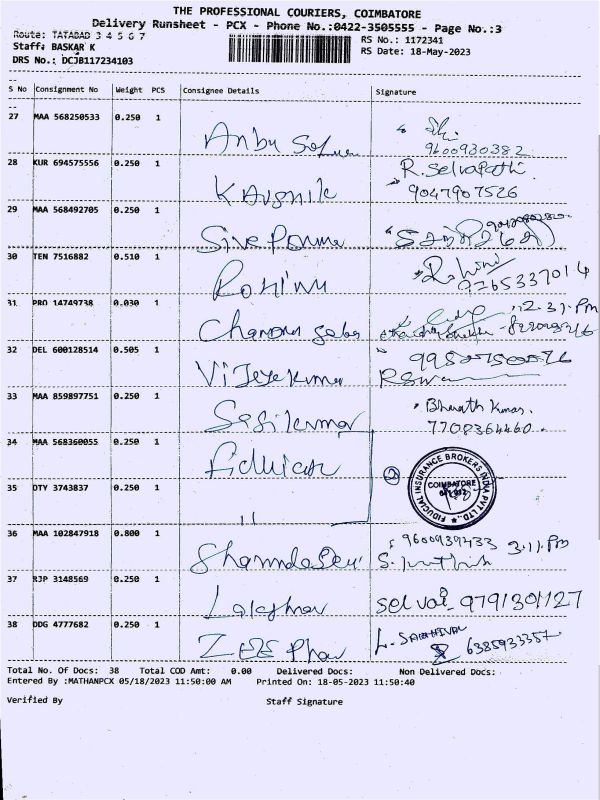 THE PROFESSIONAL COURIERS, COIMBATORE
Delivery Runsheet - PCX - Phone No.:0422-3505555 - Page No.:3
Route: TATABAD 3 4 5 6 7
RS No.: 1172341
Staff: BASKAR K
RS Date: 18-May-2023
DRS No.: DCJB117234103
S No Consignment No Weight PCS Consignee Details Signature
27 MAA 568250533 0.250 1 Anbu
9600930382
28 KUR 694575556 0.250 1 Kausnik R. Selvapathi
9047907526
29 MAA 568492705 0.250 1
30 TEN 7516882 0.510 1 Rohini
9265337014
31 PRO 14749738 0.030 1 2.31.Pm
32 DEL 600128514 0.505 1 Vijeyekumar
33 MAA 859897751 0.250 1 Sasikumar Bharath Kumar.
7708364460.
34 MAA 568360055 0.250 1
FIDUCIAL INSURANCE BROKERS INDIA PVT LTD.,
COIMBATORE
35 DTY 3743837 0.250 1 "
36 MAA 102847918 0.800 1 3.11.Pm
37 RJP 3148569 0.250 1 selvai 9791301127
38 DDG 4777682 0.250 1 L. SAKTHIVAL
6385933357
Total No. Of Docs: 38 Total COD Amt: 0.00 Delivered Docs: Non Delivered Docs:
Entered By :MATHANPCX 05/18/2023 11:50:00 AM Printed On: 18-05-2023 11:50:40
Verified By Staff Signature